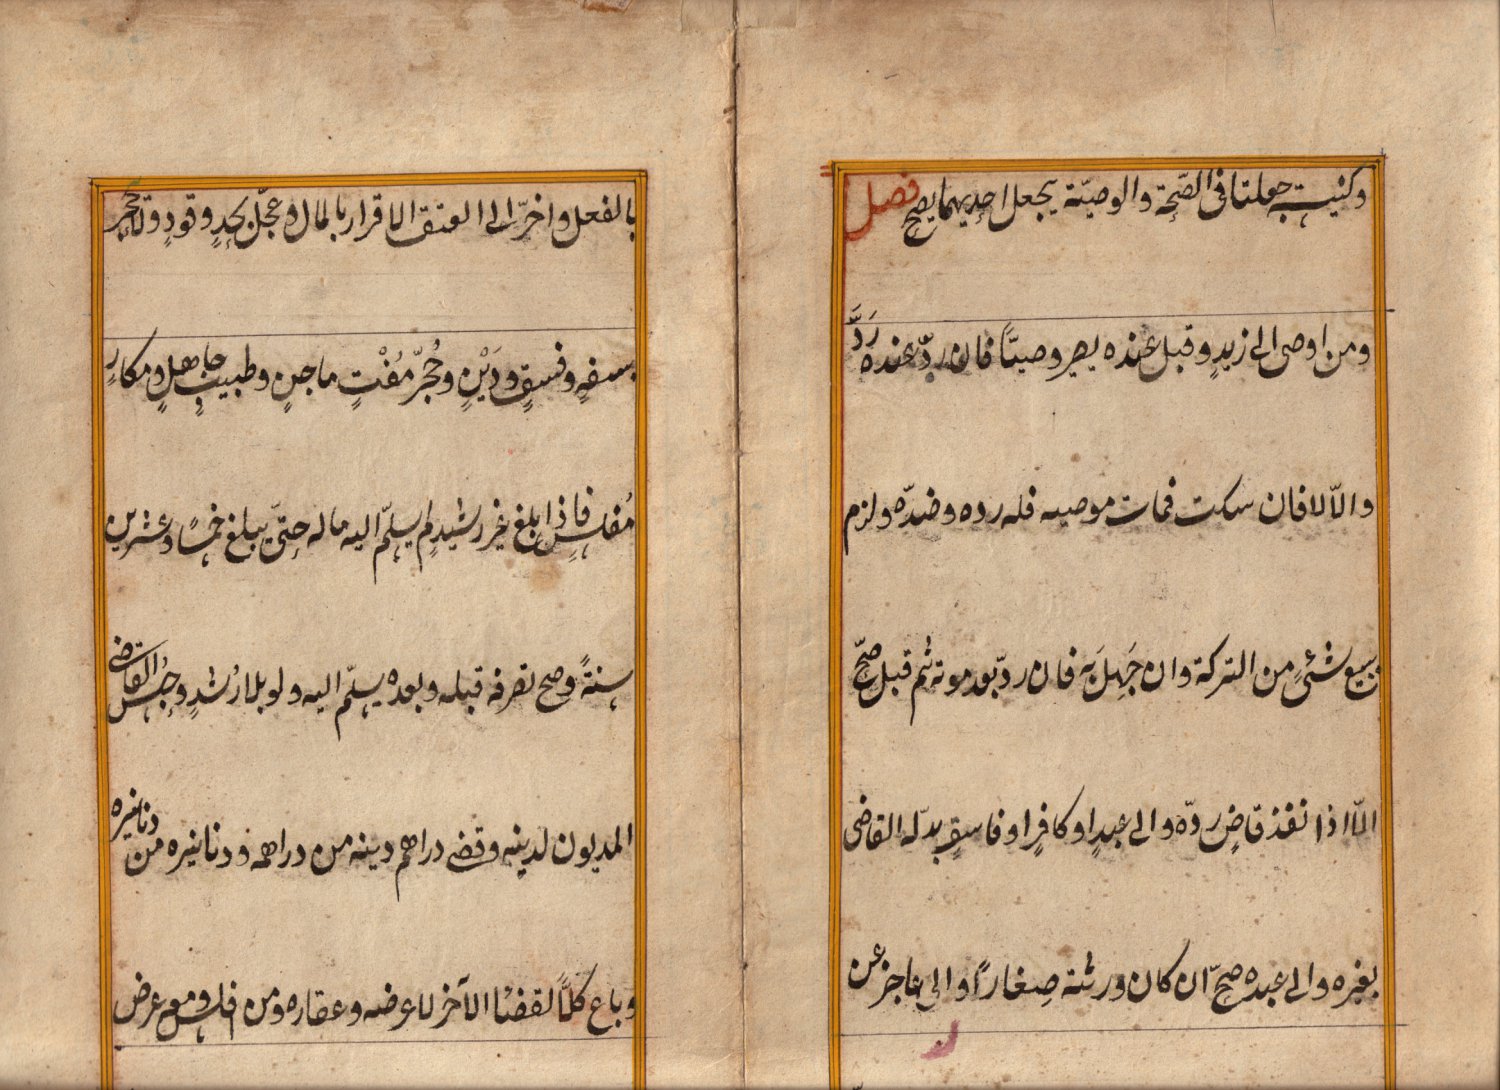 وكنيسة جعلتا فى الصّحة والوصيّة يجعل احديهما يصح فصل
ومن اوصى الى زيدٍ وقبل عنده يصير وصيّاً فان ردّ عنده رَدَّ
والّا لا فان سكت فمات موصيه فله رده وضدّه ولزم
ببيع شئىٍ من التركة وان جَهِلَ به فان ردّ بعد موته ثم قبل صحّ
الّا اذا نفذ قاضٍ ردّه والى عبدٍ او كافرٍ او فاسقٍ بدّله القاضى
بغيره والى عبده صحّ ان كان ورثته صِغارًا والى عاجز عن
بالفعل واخرّ الى العتق الاقرار بالمال وعجّل بحدٍ وقودٍ ولا حجر
بسفهٍ وفسقٍ ودَيْنٍ وحُجّر مُفْتٍ ماجنٍ وطبيبٍ جاهلٍ ومكارٍ
مُفلسٍ فاذا بلغ غير رشيدٍ لم يسلّم اليه ماله حتىّ يبلغ خمسًا وعشرين
سنةً وصح تصرفه قبله وبعده يسلّم اليه ولو بلا رُشدٍ وحُبس القاضى
المديون لدينه وقضى دراهم دينه من دراهمه ودنانيره من دنانيره
وباع كلًّا لقضاء الآخر لا عرضه وعقاره ومن افلس ومعه عرض